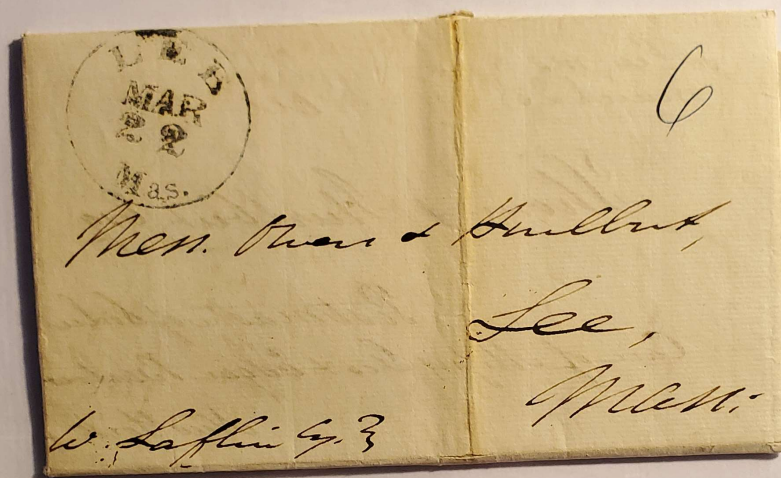 LEE
MAR
22
Mas.
6
Mess. Owen & Hurlbut,
Lee,
Mass:
W. Laflin